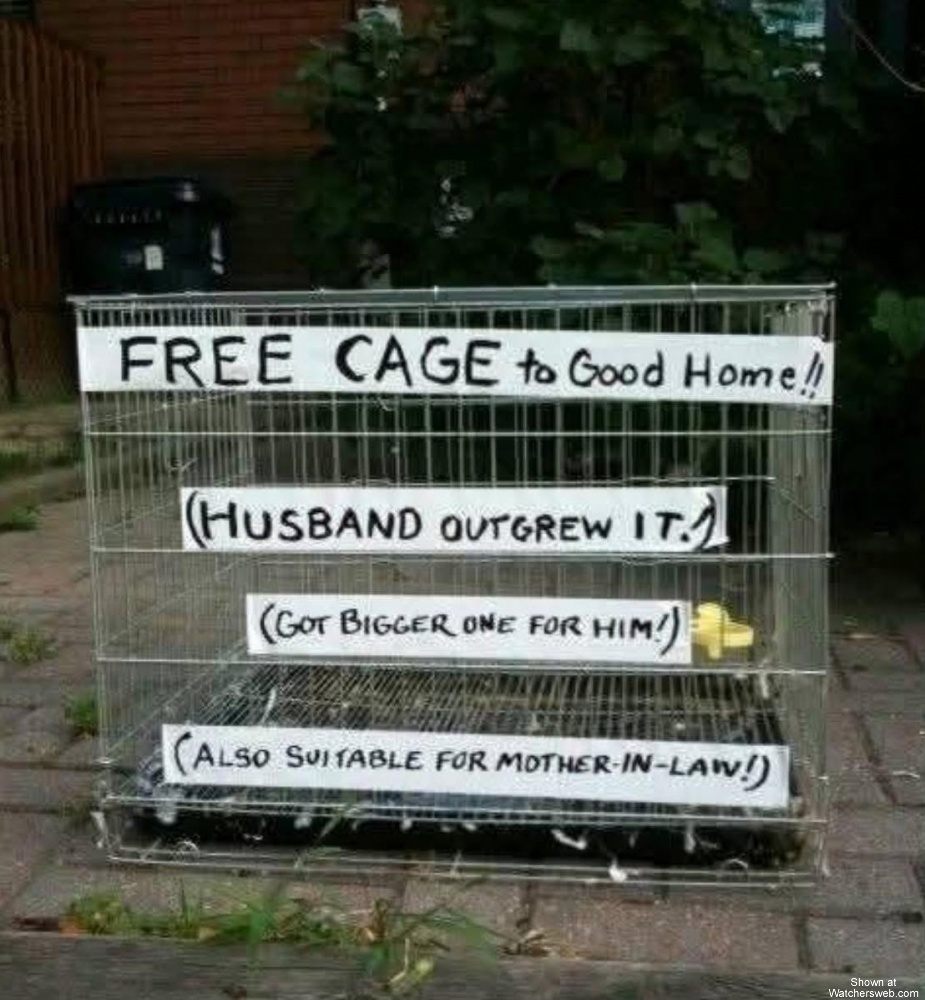 FREE CAGE to Good Home!!
(HUSBAND OUTGREW IT.!)
(GOT BIGGER ONE FOR HIM!)
(ALSO SUITABLE FOR MOTHER-IN-LAW!)
Shown at
Watchersweb.com